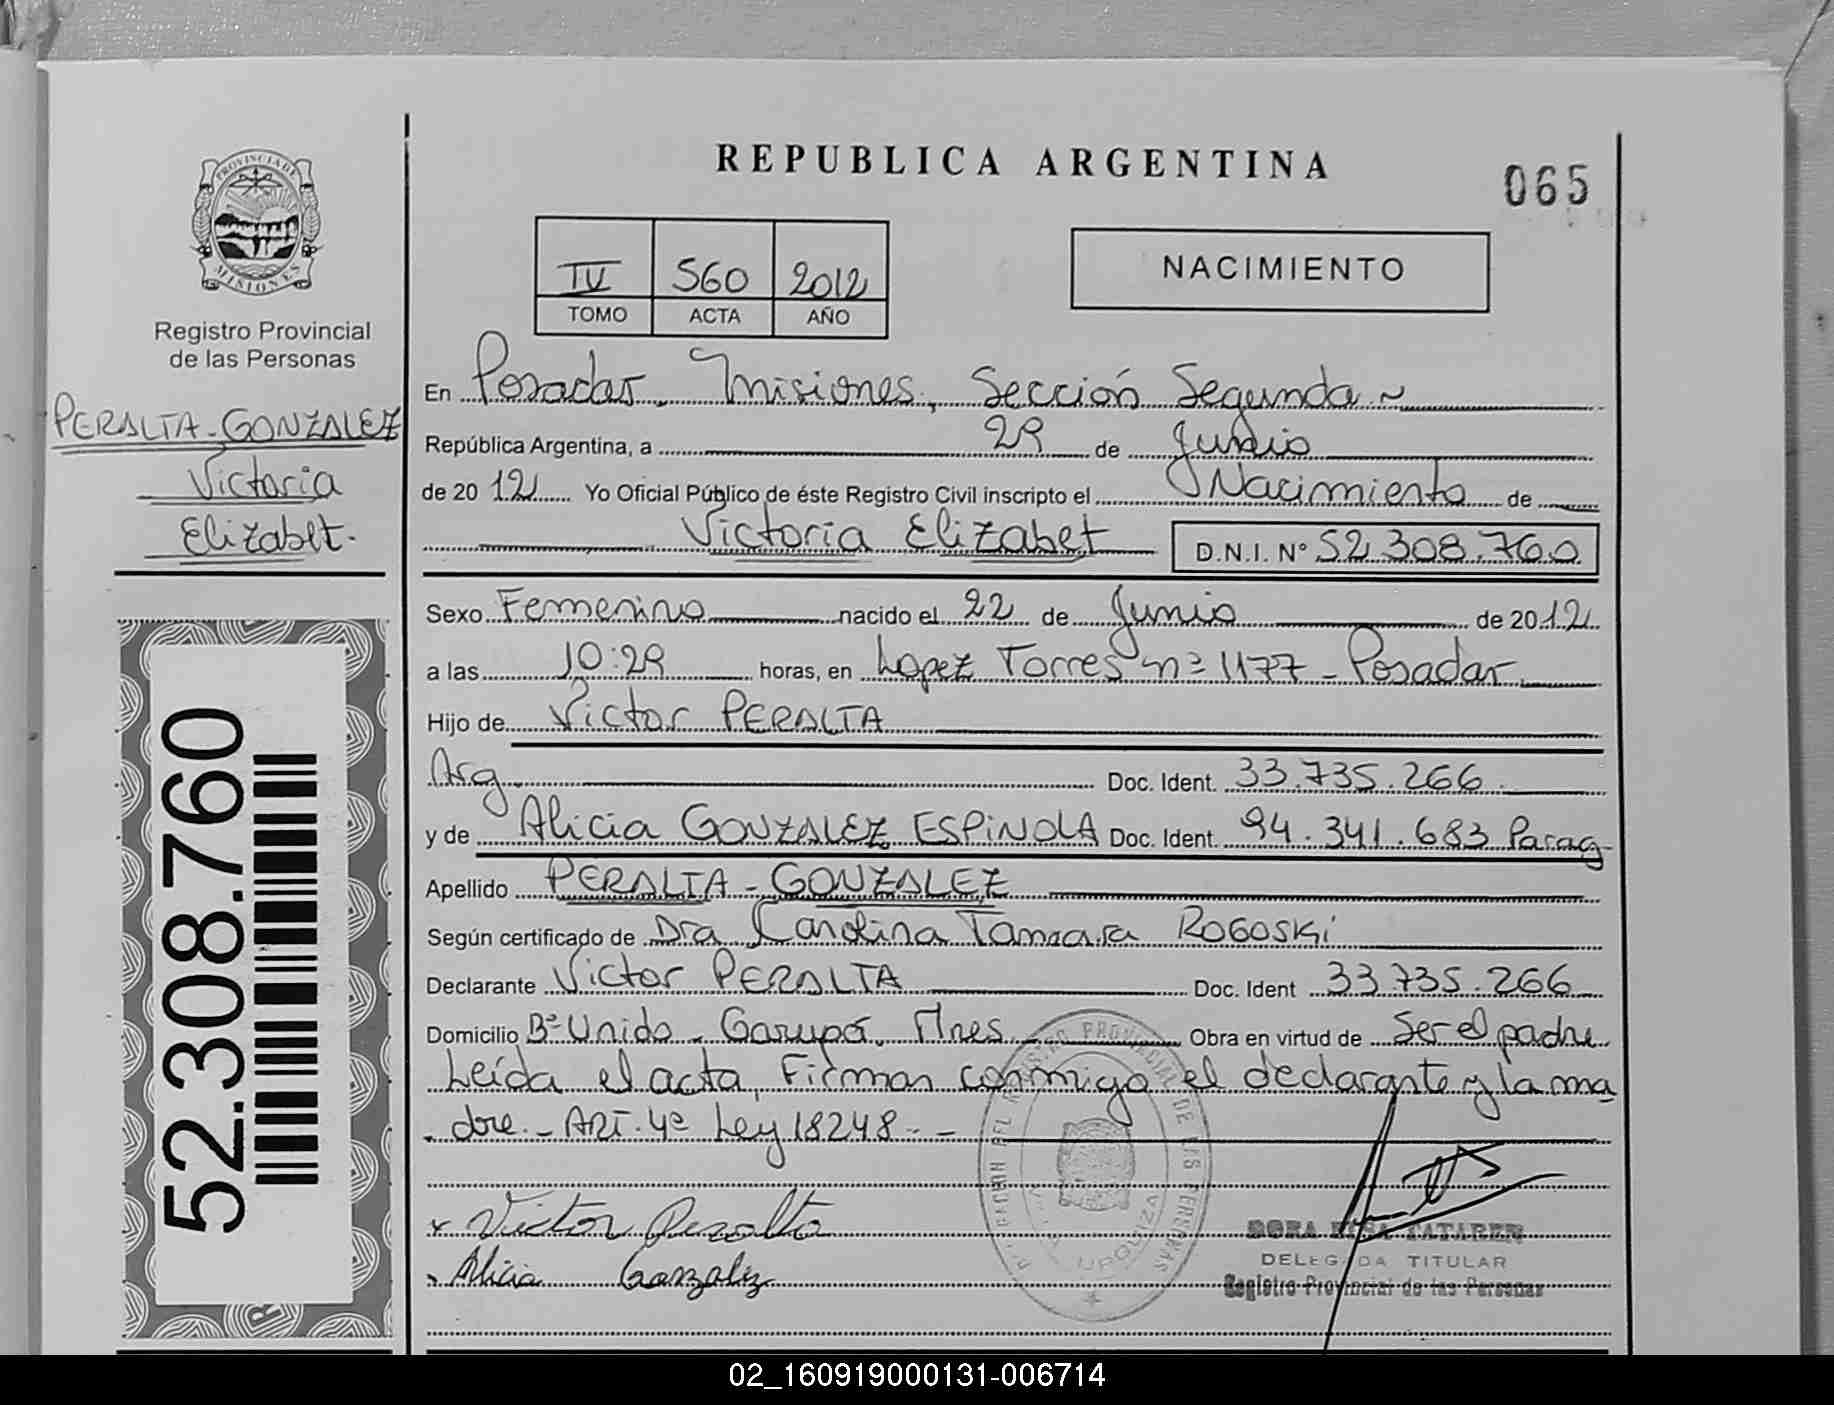 REPUBLICA ARGENTINA
065
PROVINCIA DE
MISIONES
Registro Provincial
de las Personas
IV 560 2012
TOMO ACTA AÑO
NACIMIENTO
PERALTA-GONZALEZ
Victoria
Elizabet.
En Posadas. Misiones, Sección Segunda
República Argentina, a 29 de Junio
de 2012 Yo Oficial Público de éste Registro Civil inscripto el Nacimiento de
Victoria Elizabet D.N.I. Nº 52.308.760
Sexo Femenino nacido el 22 de Junio de 2012
a las 10:29 horas, en Lopez Torres nº 1177 - Posadas
Hijo de Victor PERALTA
Arg. Doc. Ident. 33.735.266
y de Alicia GONZALEZ ESPINOLA Doc. Ident. 94.341.683 Parag
Apellido PERALTA - GONZALEZ
Según certificado de Dra Carolina Tamara ROGOSKI
Declarante Victor PERALTA Doc. Ident 33.735.266
Domicilio Bº Unido - Garupá. Mnes Obra en virtud de Ser el padre
Leída el acta, Firman conmigo el declarante y la ma
dre. - ART. 4º Ley 18248 - -
Victor Peralta
Alicia Gonzalez
DELEGADA TITULAR
Registro Provincial de las Personas
52.308.760
02_160919000131-006714